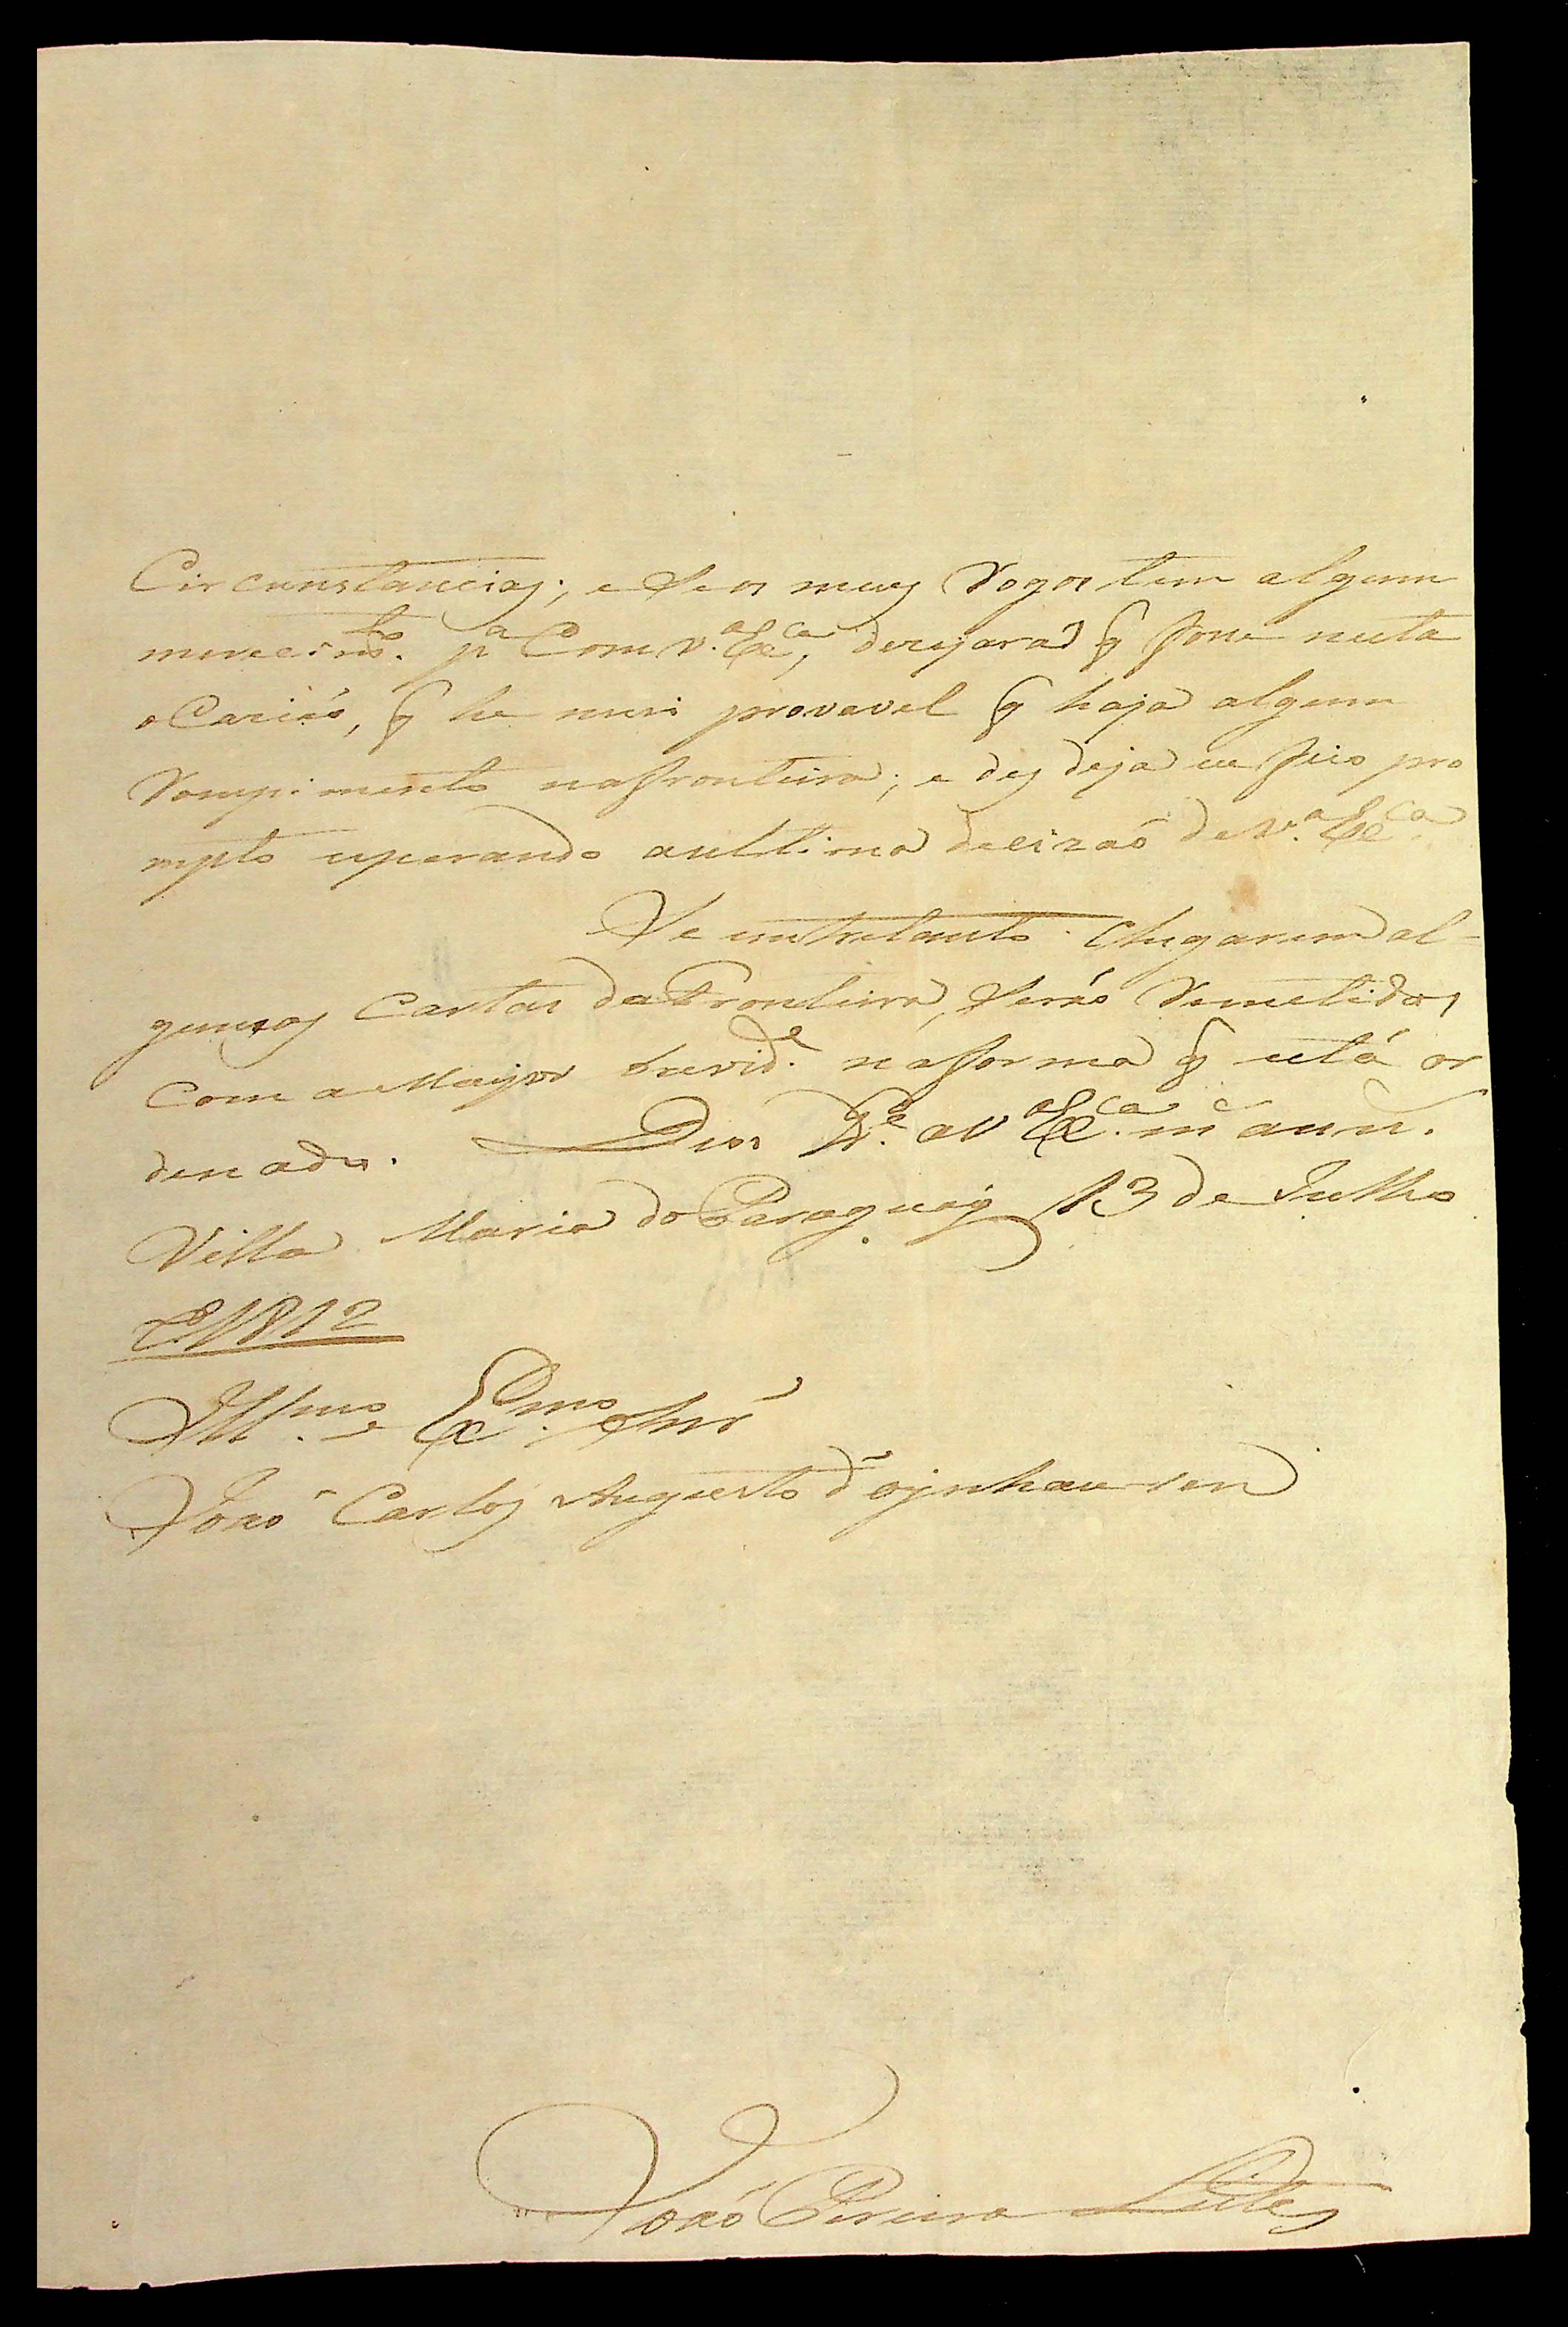 Circunstancias; e Se os meus Rogos tem algum
merecimto. pa Com V.a Exca, dezejara q̃ fose nesta
ocazião, q̃ he mui provavel q̃ haja algum
Rompimento nafronteira; e des deja eu fico pro
mpto esperando aulltima decizaõ de V.a Exca
Se entretanto Chegarem al=
gumas Cartas da Fronteira, Seráo Remetidas
Com a Mayor brevide. naforma q̃ está or
denado. Deos Gde. a V.a Exca. m̃ ann.
Villa Maria do Paraguay 13 de Julho
de 1812
Illmo. e Exmo. Snr̃
Joaõ Carlos Augusto d'oyenhausen
Joaõ Pereira Leite